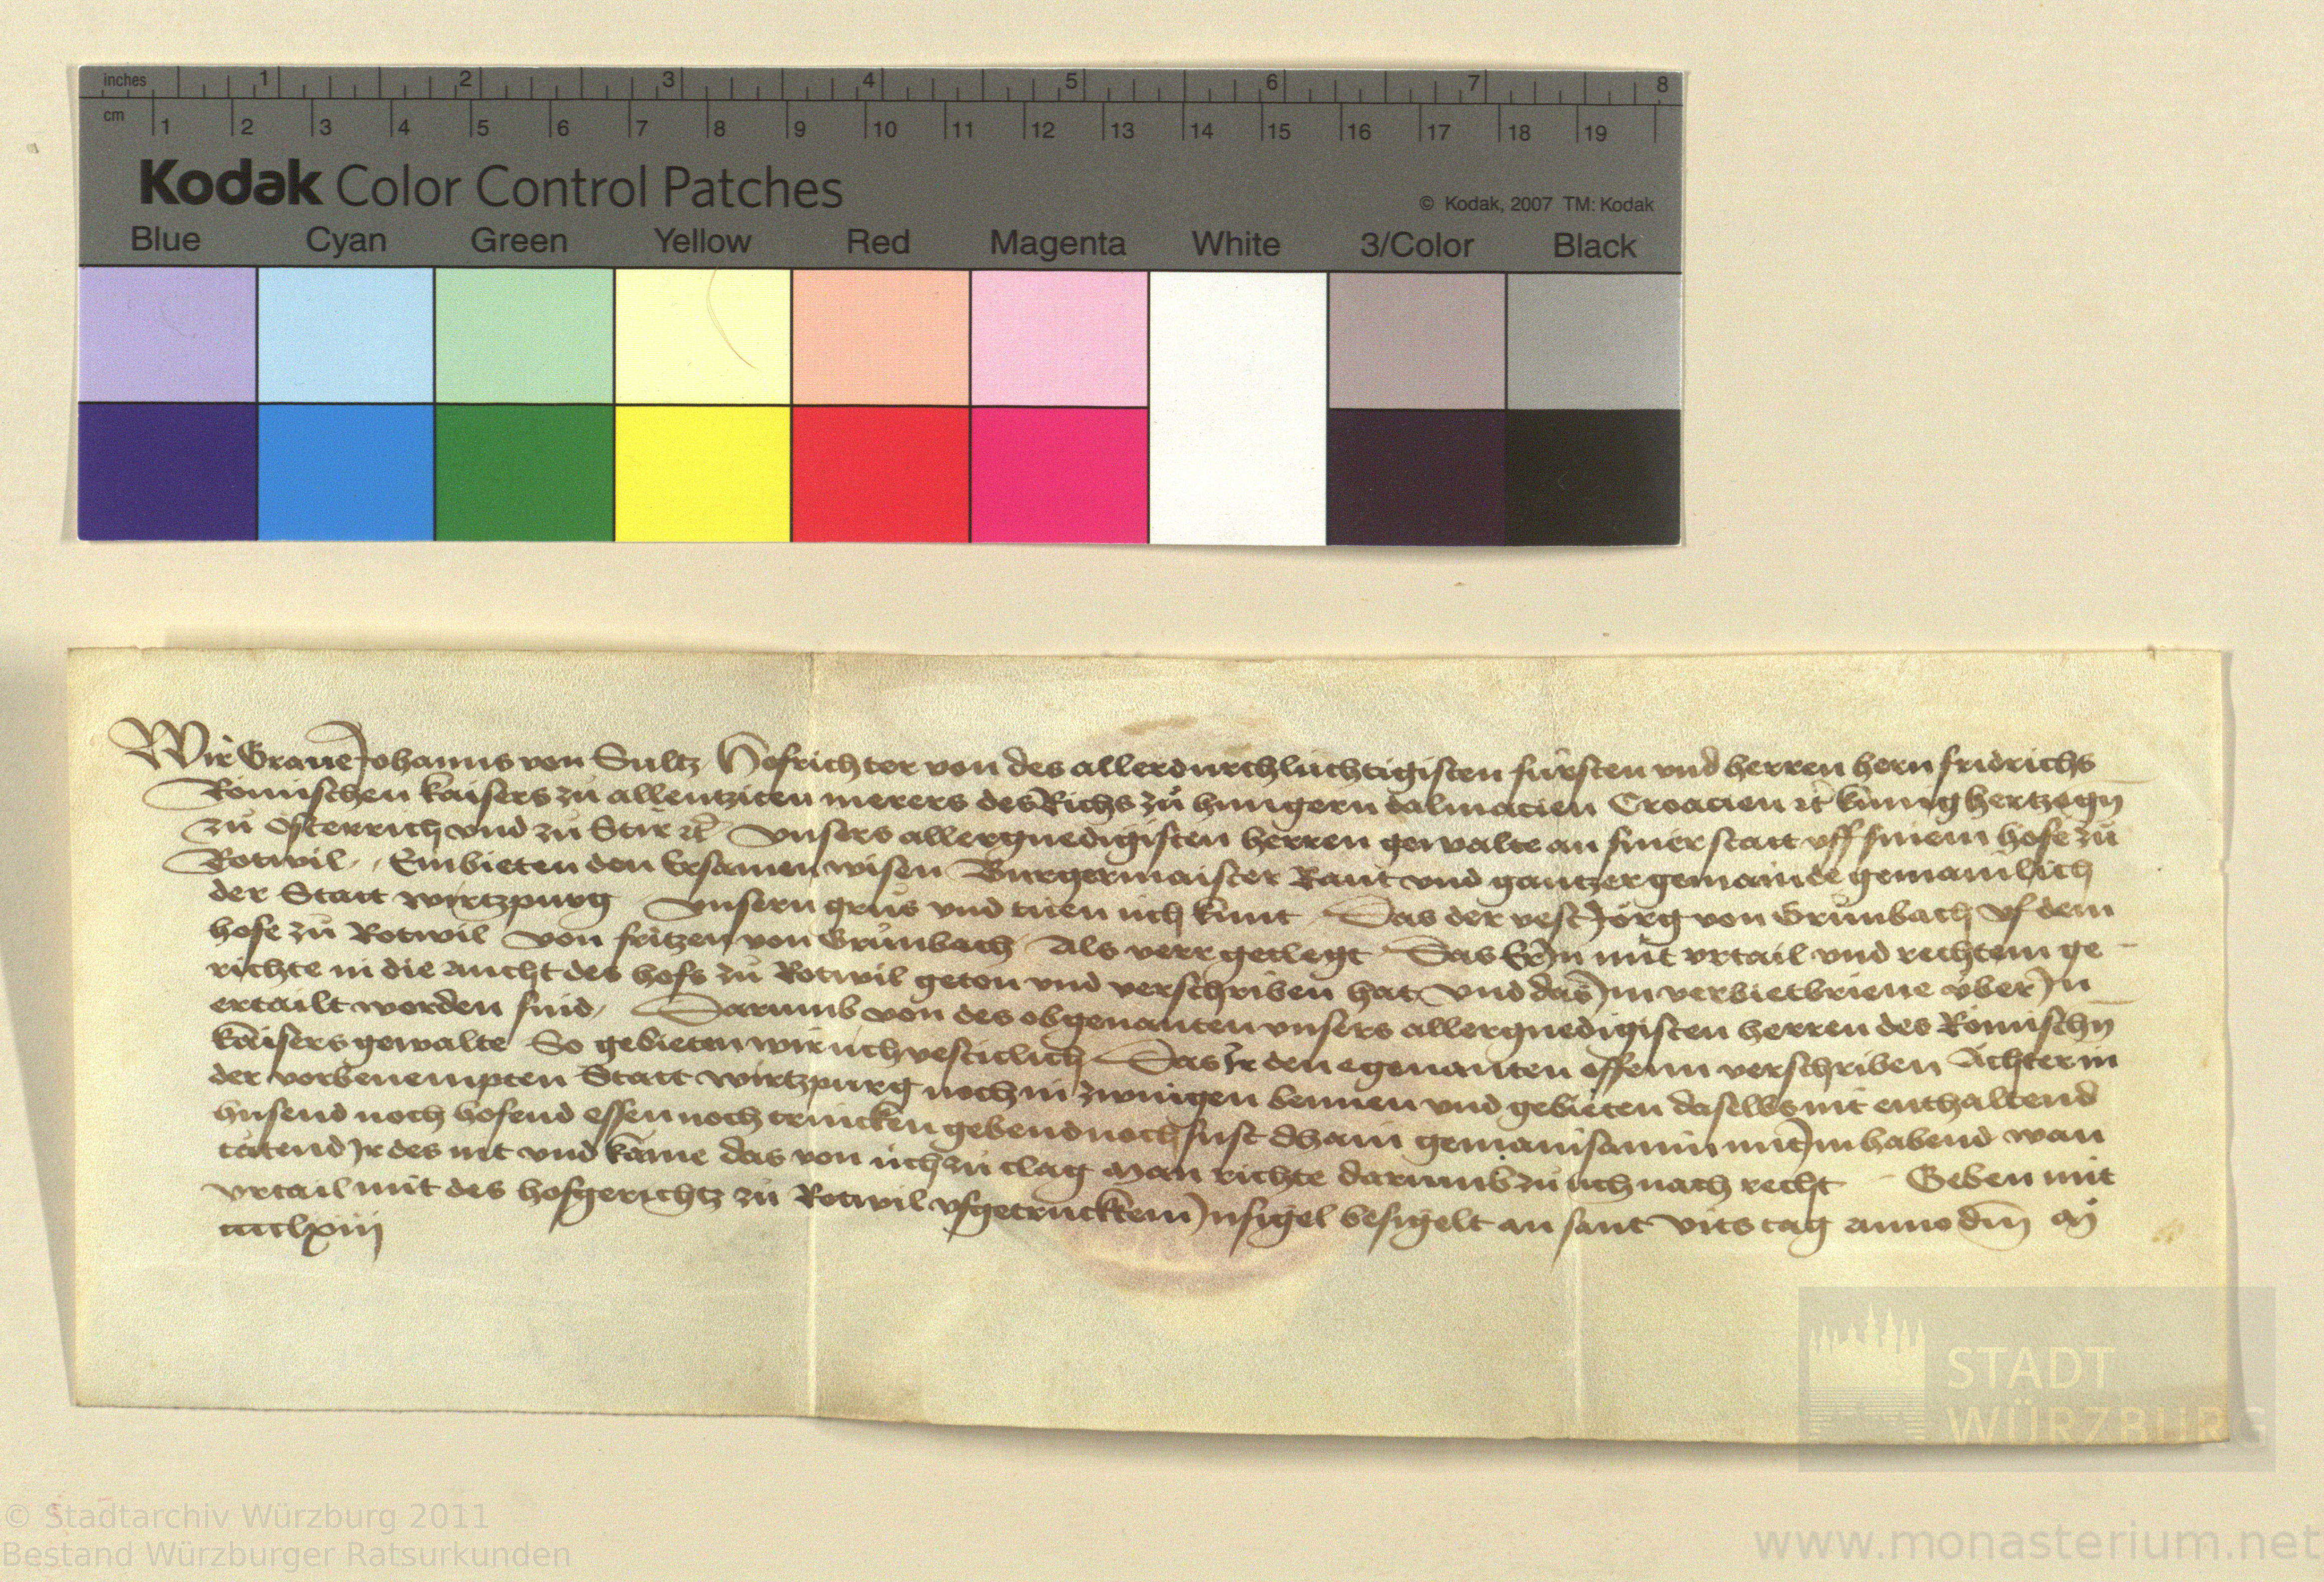 inches 1 2 3 4 5 6 7 8
cm 1 2 3 4 5 6 7 8 9 10 11 12 13 14 15 16 17 18 19
Kodak Color Control Patches
© Kodak, 2007 TM: Kodak
Blue Cyan Green Yellow Red Magenta White 3/Color Black
Wir Graue Johanns von Sultz Hofrichter von des allerdurchluchtigisten fürsten vnd herren hern fridrichs
Römischen kaisers zů allentziten merers des Richs zů hungern dalmacien Croacien ꝛc künig hertzogn
zů Österrich vnd zů Stir ꝛc vnsers allergnedigisten herren gewalte an siner statt vff sinem hofe zů
Rotwil, Embieten den Ersamen wisen Burgermaister Raut vnd gantzer gemainde gemainlich
der Statt wirtzpurg vnsern grůs vnd tůen üch kunt Das der vest Jörg von Grůnbach vf dem
hofe zů Rotwil von fritzen von Grůnbach Als verr geclegt Das Er Jn mit vrtail vnd rechtem ge
richte in die aucht des hofs zů Rotwil geton vnd verschriben hat vnd das Jm verbietbrieue über Jn
ertailt worden sind, Darumb von des obgenanten vnsers allergnedigisten herren des Römischn
kaisers gewalte So gebieten wir üch vesticlich Das Jr den egenanten offenn verschriben Ächter in
der vorbenempten Statt wirtzpurg noch in zwingen bennen vnd gebieten daselbs nit enthaltend
husend noch hofend essen noch trincken gebend noch sust dhain gemainsamin mit Jm habend wan
tätend Jr des nit vnd käme das von üch zů clag man richte darumb zů üch nach recht Geben mit
vrtail mit des hofgerichtz zů Rotwil vfgetrucktem Jnsigel besigelt an sant vits tag anno dm̄ mº
cccclxiij
STADT
WÜRZBURG
© Stadtarchiv Würzburg 2011
Bestand Würzburger Ratsurkunden
www.monasterium.net